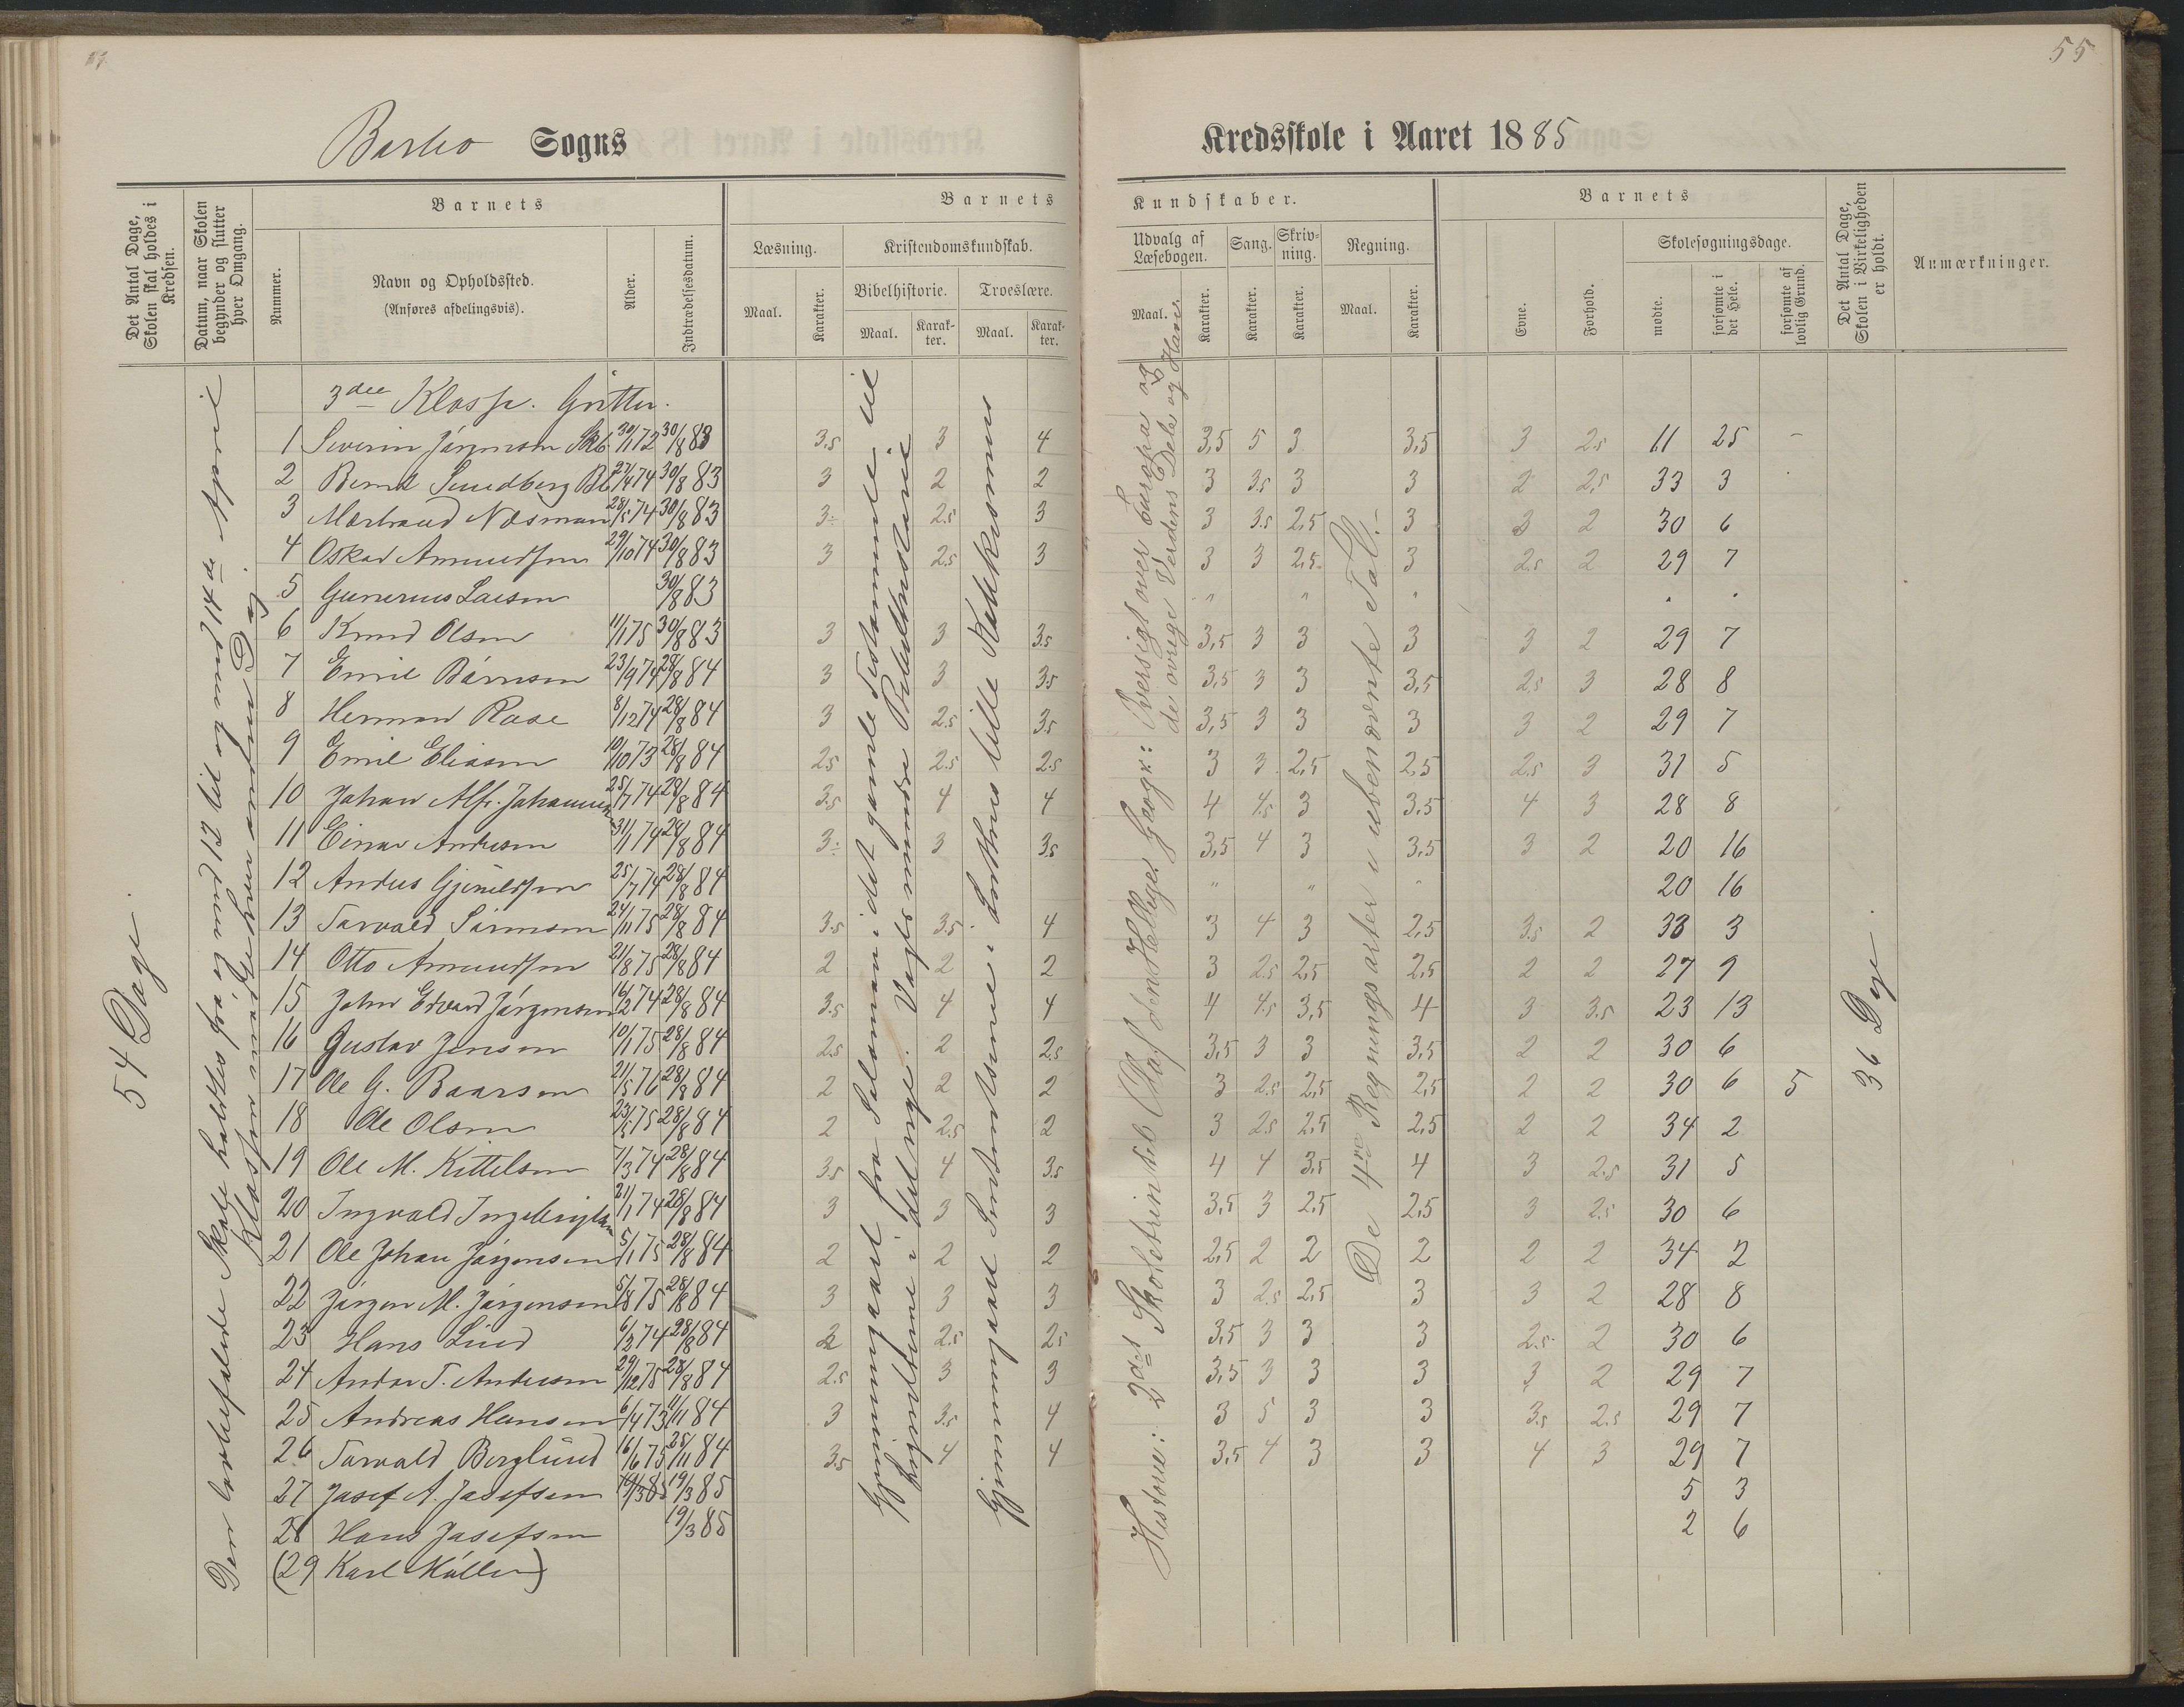 55
Barbo Sogns
Kredsskole i Aaret 1885
Det Antal Dage, Skolen skal holdes i Kredsen.
Datum, naar Skolen begynder og slutter hver Omgang.
Barnets
Nummer.
Navn og Opholdssted.
(Anføres afdelingsvis).
Alder.
Indtrædelsesdatum.
Barnets Kundskaber.
Læsning.
Maal.
Karakter.
Kristendomskundskab.
Bibelhistorie.
Maal.
Karakter.
Troeslære.
Maal.
Karakter.
Udvalg af Læsebogen.
Maal.
Karakter.
Sang.
Karakter.
Skrivning.
Karakter.
Regning.
Maal.
Karakter.
Barnets
Evne.
Forhold.
Skolesøgningsdage.
mødte.
forsømte i det Hele.
forsømte af lovlig Grund.
Det Antal Dage, Skolen i Virkeligheden er holdt.
Anmærkninger.
54 Dage.
Klassen
3die Klasse. Gutter.
1 Severin Jörgensen 30/8 83 3.5 3 4 3,5 5 3 3,5 3 2.5 11 25 -
2 Bernt Sundberg 27/4 74 30/8 83 3 2 2 3 3.5 3 3 2 2,5 33 3
3 28/5 74 30/8 83 3 2.5 3 3 3.5 2,5 3 3 2 30 6
4 Oskar Amundsen 29/10 74 30/8 83 3 2.5 3 3 3 2,5 3 2.5 2 29 7
5 Gunerius Larsen 30/8 83
6 Knud Olsen 11/1 75 30/8 83 3 3 3.5 3,5 3 3 3 3 2 29 7
7 Emil 23/9 74 28/8 84 3 3 3.5 3,5 3 3 3,5 2.5 3 28 8
8 Herman 8/12 74 28/8 84 3 2.5 3.5 3,5 3 3 3 3 2 29 7
9 Emil Eliasen 10/10 73 28/8 84 2.5 2.5 2.5 3 3 2,5 2,5 2.5 3 31 5
10 Johan Alfr. Johannesen 25/7 74 28/8 84 3.5 4 4 4 4.5 3 3,5 4 3 28 8
11 Einar Andersen 31/1 74 28/8 84 3 3 3.5 3,5 4 3 3,5 3 2 20 16
12 Anders 25/7 74 28/8 84 20 16
13 Torvald 24/11 75 28/8 84 3.5 3.5 4 3 4 3 2,5 3.5 2 33 3
14 Otto Amundsen 21/8 75 28/8 84 2 2 2 3 2.5 2,5 2,5 2 2 27 9
15 John Edvard Jörgensen 16/2 74 28/8 84 3.5 4 4 4 4.5 3,5 4 3 3.5 23 13
16 Gustav Jensen 10/1 75 28/8 84 2.5 2 2.5 3,5 3 3 3,5 2 2 30 6
17 Ole G. Baarsen 21/5 76 28/8 84 2 2 2 3 2.5 2,5 2,5 2 2 30 6 5
18 Ole Olsen 23/5 75 28/8 84 2 2.5 2 3 2.5 2,5 2,5 2 2 34 2
19 Ole M. Kittelsen 7/3 74 28/8 84 3.5 4 3.5 4 4 3,5 4 3 2.5 31 5
20 Ingvald Ingebrigtsen 21/1 74 28/8 84 3 3 3 3,5 3 2,5 2,5 3 2.5 30 6
21 Ole Johan Jörgensen 5/1 75 28/8 84 2 2 2 2,5 2 2 2 2 2 34 2
22 Jörgen M. Jörgensen 5/8 75 28/8 84 3 3 3 3 2.5 2,5 3 3 2 28 8
23 Hans Lind 74 28/8 84 2.5 2.5 3,5 3 3 3 2.5 2 30 6
24 T. Andersen 29/12 75 28/8 84 2.5 3 3 3,5 3 3 3 3 2 29 7
25 Andreas Hansen 6/4 73 84 3 3.5 4 3 5 3 3 3.5 2.5 29 7
26 Torvald Berglund 16/6 75 25/11 84 3.5 4 4 3,5 4 3 3 4 3 29 7
27 Josef A. Josefsen 19/3 85 5 3
28 Hans Josefsen 19/3 85 2 6
(29 Karl Möller)
Historie: 2det Skoletrin til Olaf den Hellige. Geogr: Oversigt over Europa og de övrige Verdens Dele og Have.
De 4re Regningsarter i ubenævnte Tal.
36 Dage.